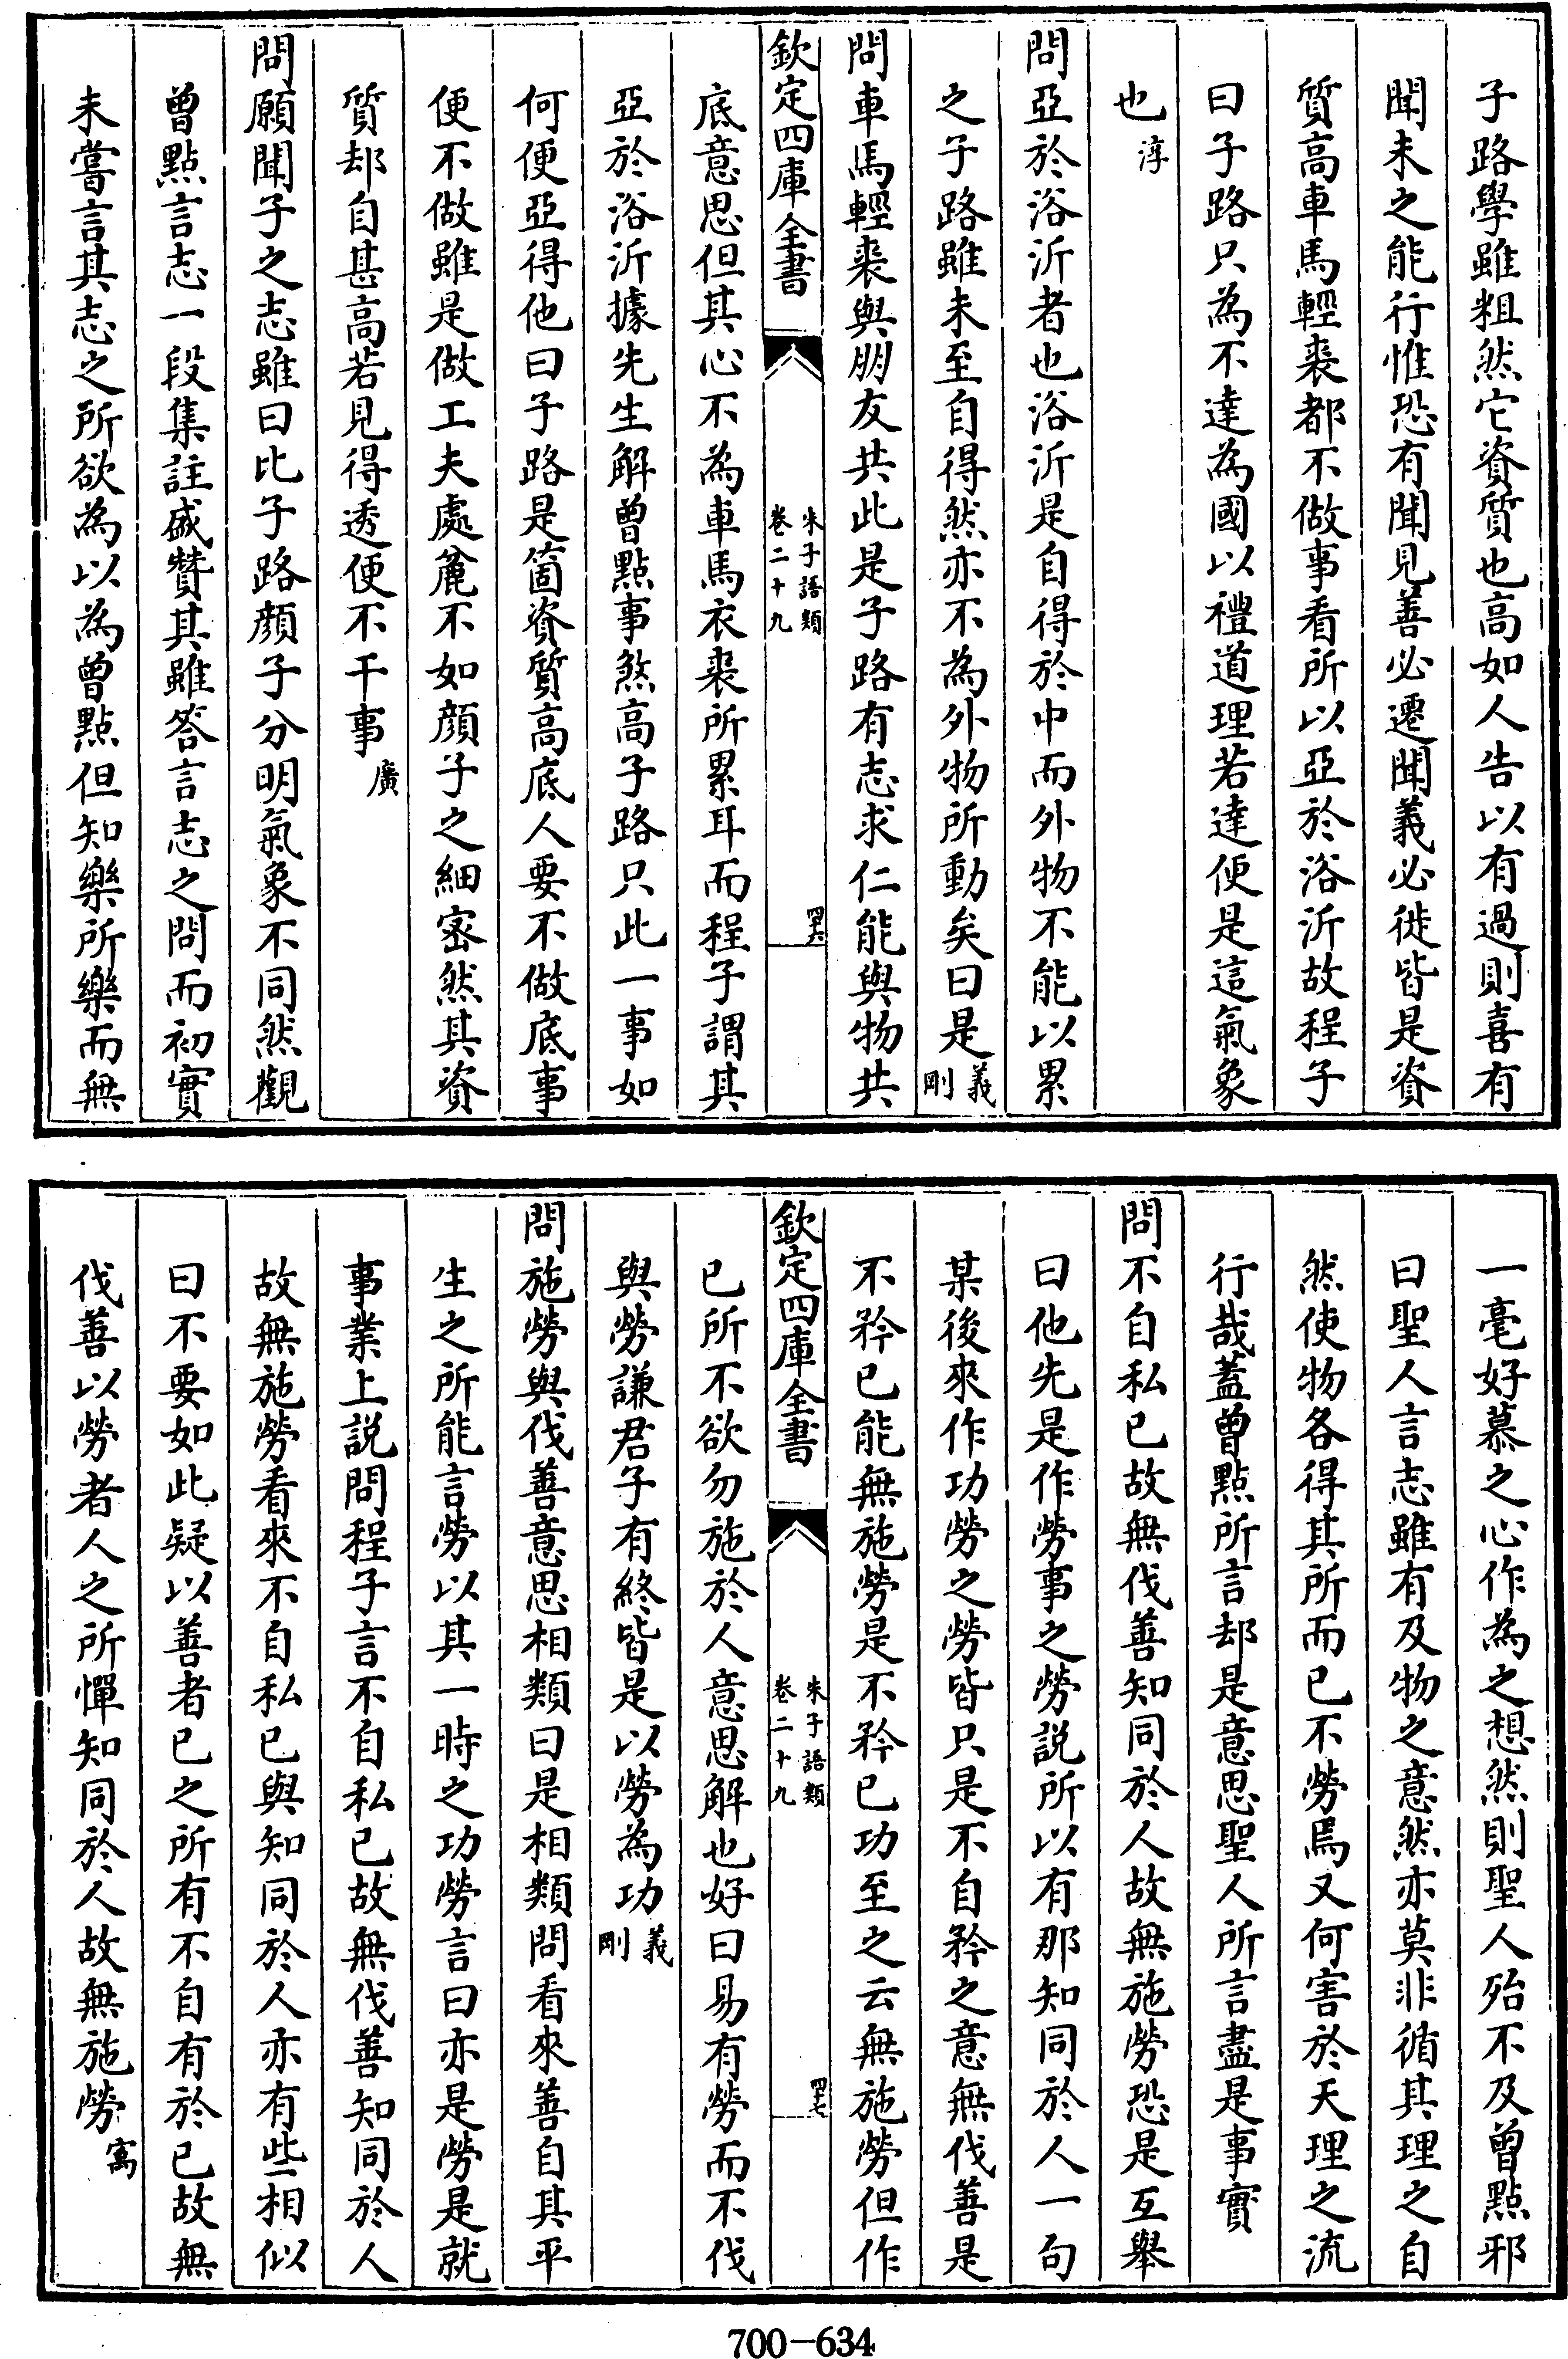 子路學雖粗然它資質也高如人告以有過則喜有
聞未之能行惟恐有聞見善必遷聞義必徙皆是資
質高車馬輕裘都不做事看所以亞於浴沂故程子
曰子路只為不達為國以禮道理若達便是這氣象
也淳
問亞於浴沂者也浴沂是自得於中而外物不能以累
之子路雖未至自得然亦不為外物所動矣曰是義剛
問車馬輕裘與朋友共此是子路有志求仁能與物共
欽定四庫全書 朱子語類 卷二十九 四十六
底意思但其心不為車馬衣裘所累耳而程子謂其
亞於浴沂據先生解曾點事煞高子路只此一事如
何便亞得他曰子路是箇資質高底人要不做底事
便不做雖是做工夫處麄不如顏子之細密然其資
質却自甚高若見得透便不干事廣
問願聞子之志雖曰比子路顏子分明氣象不同然觀
曾點言志一段集註盛贊其雖答言志之問而初實
未嘗言其志之所欲為以為曾點但知樂所樂而無
一毫好慕之心作為之想然則聖人殆不及曾點邪
曰聖人言志雖有及物之意然亦莫非循其理之自
然使物各得其所而已不勞焉又何害於天理之流
行哉蓋曾點所言却是意思聖人所言盡是事實
問不自私已故無伐善知同於人故無施勞恐是互舉
曰他先是作勞事之勞説所以有那知同於人一句
某後來作功勞之勞皆只是不自矜之意無伐善是
不矜已能無施勞是不矜已功至之云無施勞但作
欽定四庫全書 朱子語類 卷二十九 四十七
已所不欲勿施於人意思解也好曰易有勞而不伐
與勞謙君子有終皆是以勞為功義剛
問施勞與伐善意思相類曰是相類問看來善自其平
生之所能言勞以其一時之功勞言曰亦是勞是就
事業上説問程子言不自私已故無伐善知同於人
故無施勞看來不自私已與知同於人亦有些相似
曰不要如此疑以善者已之所有不自有於已故無
伐善以勞者人之所憚知同於人故無施勞㝢
700-634